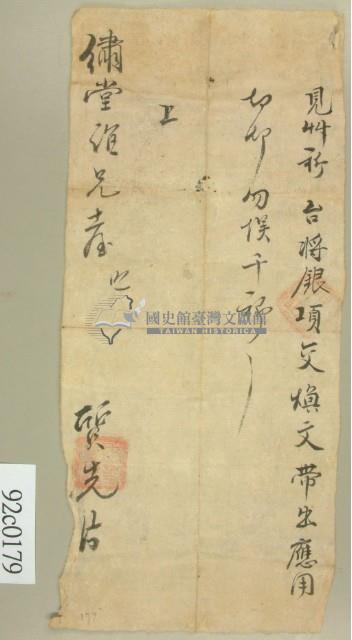 見艸祈 台將銀項交煥文帶出應用
切切勿悮千祈
上
繡堂組兄臺
賢先片
國史館臺灣文獻館
TAIWAN HISTORICA
92c0179
177